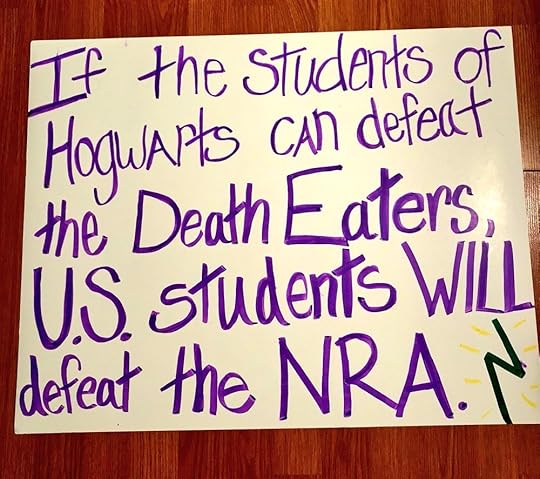 If the students of
Hogwarts can defeat
the Death Eaters,
U.S. students WILL
defeat the NRA.